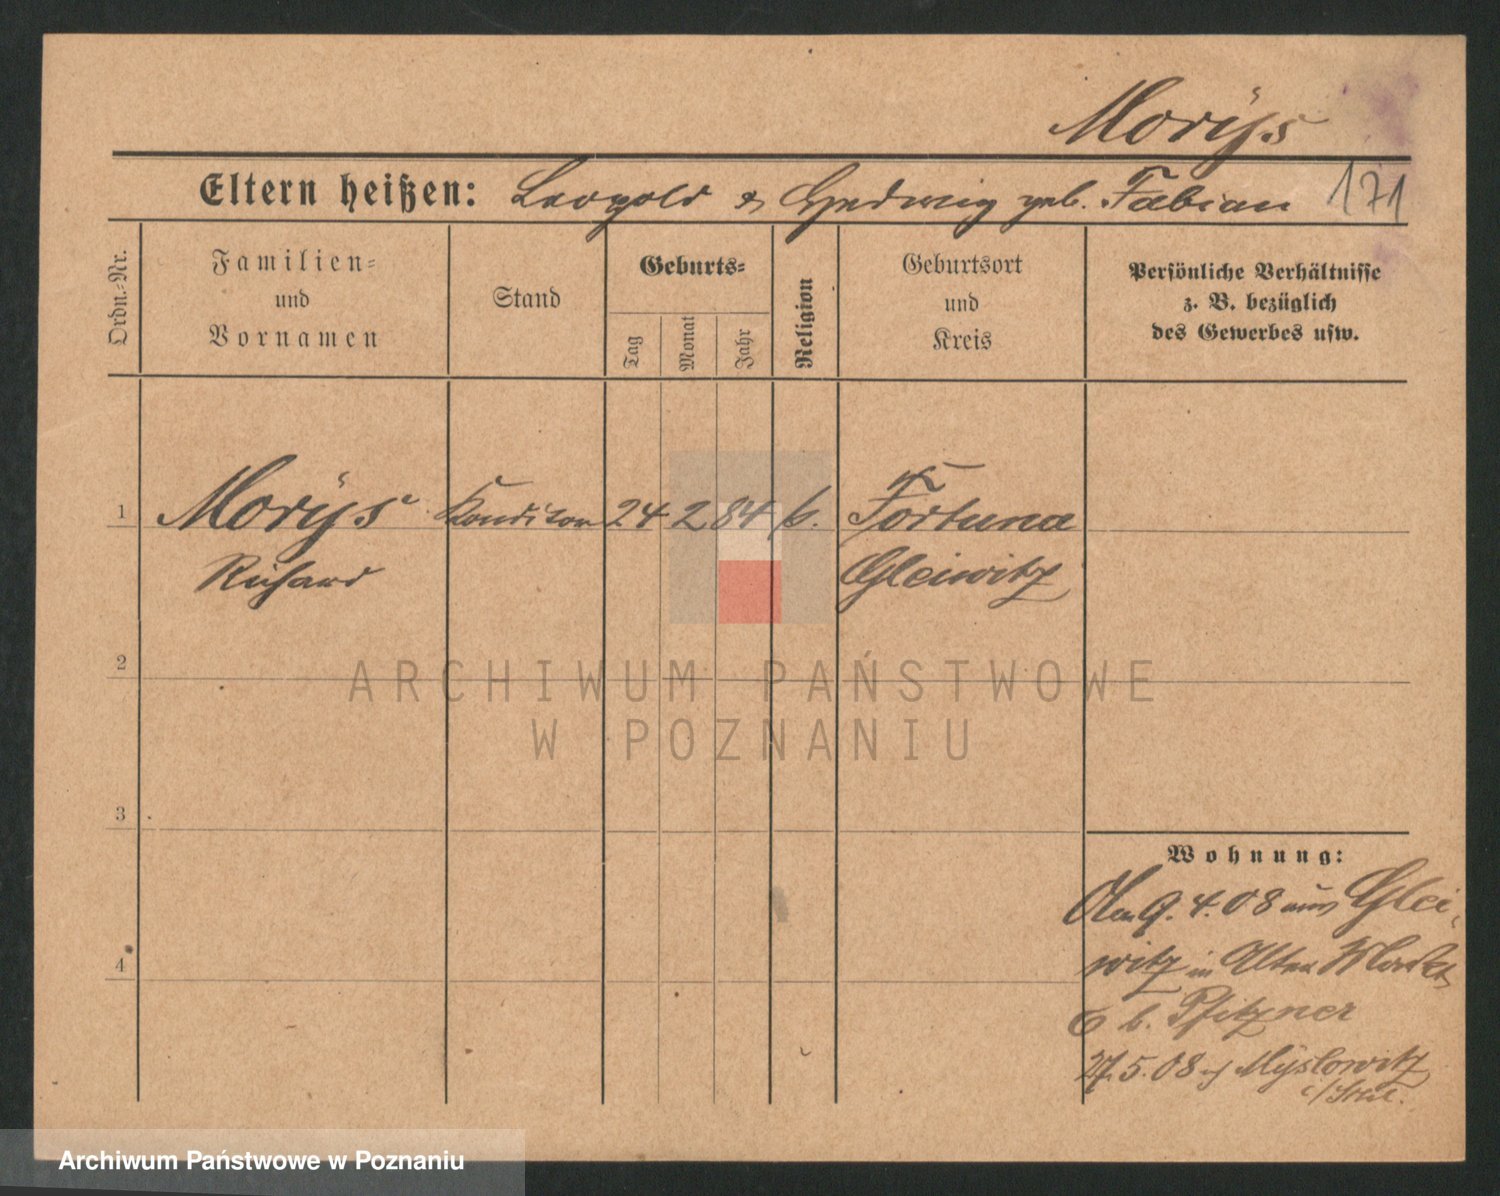 Moryss
Eltern heißen: Leopold & Hedwig geb. Fabian 171
Ordn.-Nr.
Familien-
und
Vornamen
Stand
Geburts-
Tag
Monat
Jahr
Religion
Geburtsort
und
Kreis
Persönliche Verhältnisse
z. B. bezüglich
des Gewerbes usw.
1 Moryss Konditor 24 2 84 k. Fortuna
Richard Gleiwitz
2
ARCHIWUM PAŃSTWOWE
W POZNANIU
3
Wohnung:
9.4.08 aus Glei-
witz in Alter Markt
6 b. Pfitzner
4
27.5.08 Myslowitz
Archiwum Państwowe w Poznaniu